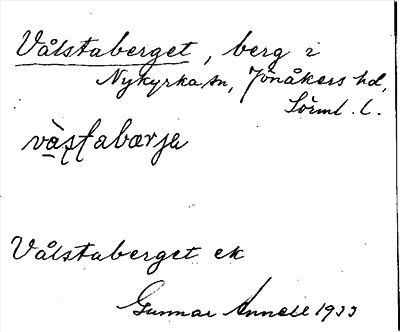 Vålstaberget, berg i
Nykyrka sn, Jönåkers hd,
Sörml. l.
Vålstaberget ek
Gunnar Annell 1933